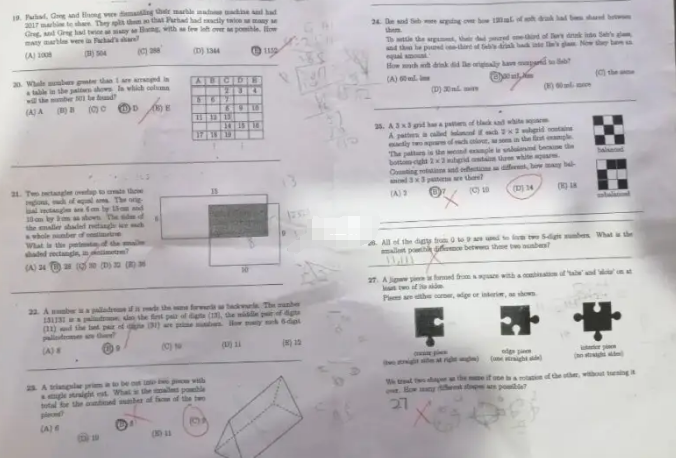 19. Farhad, Greg and Huong were dismantling their marble madness machine and had
2017 marbles to share. They split them so that Farhad had exactly twice as many as
Greg, and Greg had twice as many as Huong, with as few left over as possible. How
many marbles were in Farhad's share?
(A) 1008 (B) 504 (C) 288 (D) 1344 (E) 1152
20. Whole numbers greater than 1 are arranged in
a table in the pattern shown. In which column
will the number 101 be found?
(A) A (B) B (C) C (D) D (E) E
A B C D E
2 3 4
5 6 7
8 9 10
11 12 13
14 15 16
17 18 19
21. Two rectangles overlap to create three
regions, each of equal area. The orig-
inal rectangles are 6 cm by 15 cm and
10 cm by 9 cm as shown. The sides of
the smaller shaded rectangle are each
a whole number of centimetres.
What is the perimeter of the smaller
shaded rectangle, in centimetres?
(A) 24 (B) 28 (C) 30 (D) 32 (E) 36
15
6
9
10
22. A number is a palindrome if it reads the same forwards as backwards. The number
131131 is a palindrome, also the first pair of digits (13), the middle pair of digits
(11) and the last pair of digits (31) are prime numbers. How many such 6-digit
palindromes are there?
(A) 8 (B) 9 (C) 10 (D) 11 (E) 12
23. A triangular prism is to be cut into two pieces with
a single straight cut. What is the smallest possible
total for the combined number of faces of the two
pieces?
(A) 6 (B) 8 (C) 9
(D) 10 (E) 11
24. Ike and Seb were arguing over how 120 mL of soft drink had been shared between
them.
To settle the argument, their dad poured one-third of Ike's drink into Seb's glass,
and then he poured one-third of Seb's drink back into Ike's glass. Now they have an
equal amount.
How much soft drink did Ike originally have compared to Seb?
(A) 60 mL less (B) 30 mL less (C) the same
(D) 30 mL more (E) 60 mL more
25. A 3 x 3 grid has a pattern of black and white squares.
A pattern is called balanced if each 2 x 2 subgrid contains
exactly two squares of each colour, as seen in the first example.
The pattern in the second example is unbalanced because the
bottom-right 2 x 2 subgrid contains three white squares.
Counting rotations and reflections as different, how many bal-
anced 3 x 3 patterns are there?
(A) 2 (B) 7 (C) 10 (D) 14 (E) 18
balanced
unbalanced
26. All of the digits from 0 to 9 are used to form two 5-digit numbers. What is the
smallest possible difference between these two numbers?
27. A jigsaw piece is formed from a square with a combination of 'tabs' and 'slots' on at
least two of its sides.
Pieces are either corner, edge or interior, as shown.
corner piece edge piece interior piece
(two straight sides at right angles) (one straight side) (no straight sides)
We treat two shapes as the same if one is a rotation of the other, without turning it
over. How many different shapes are possible?
27